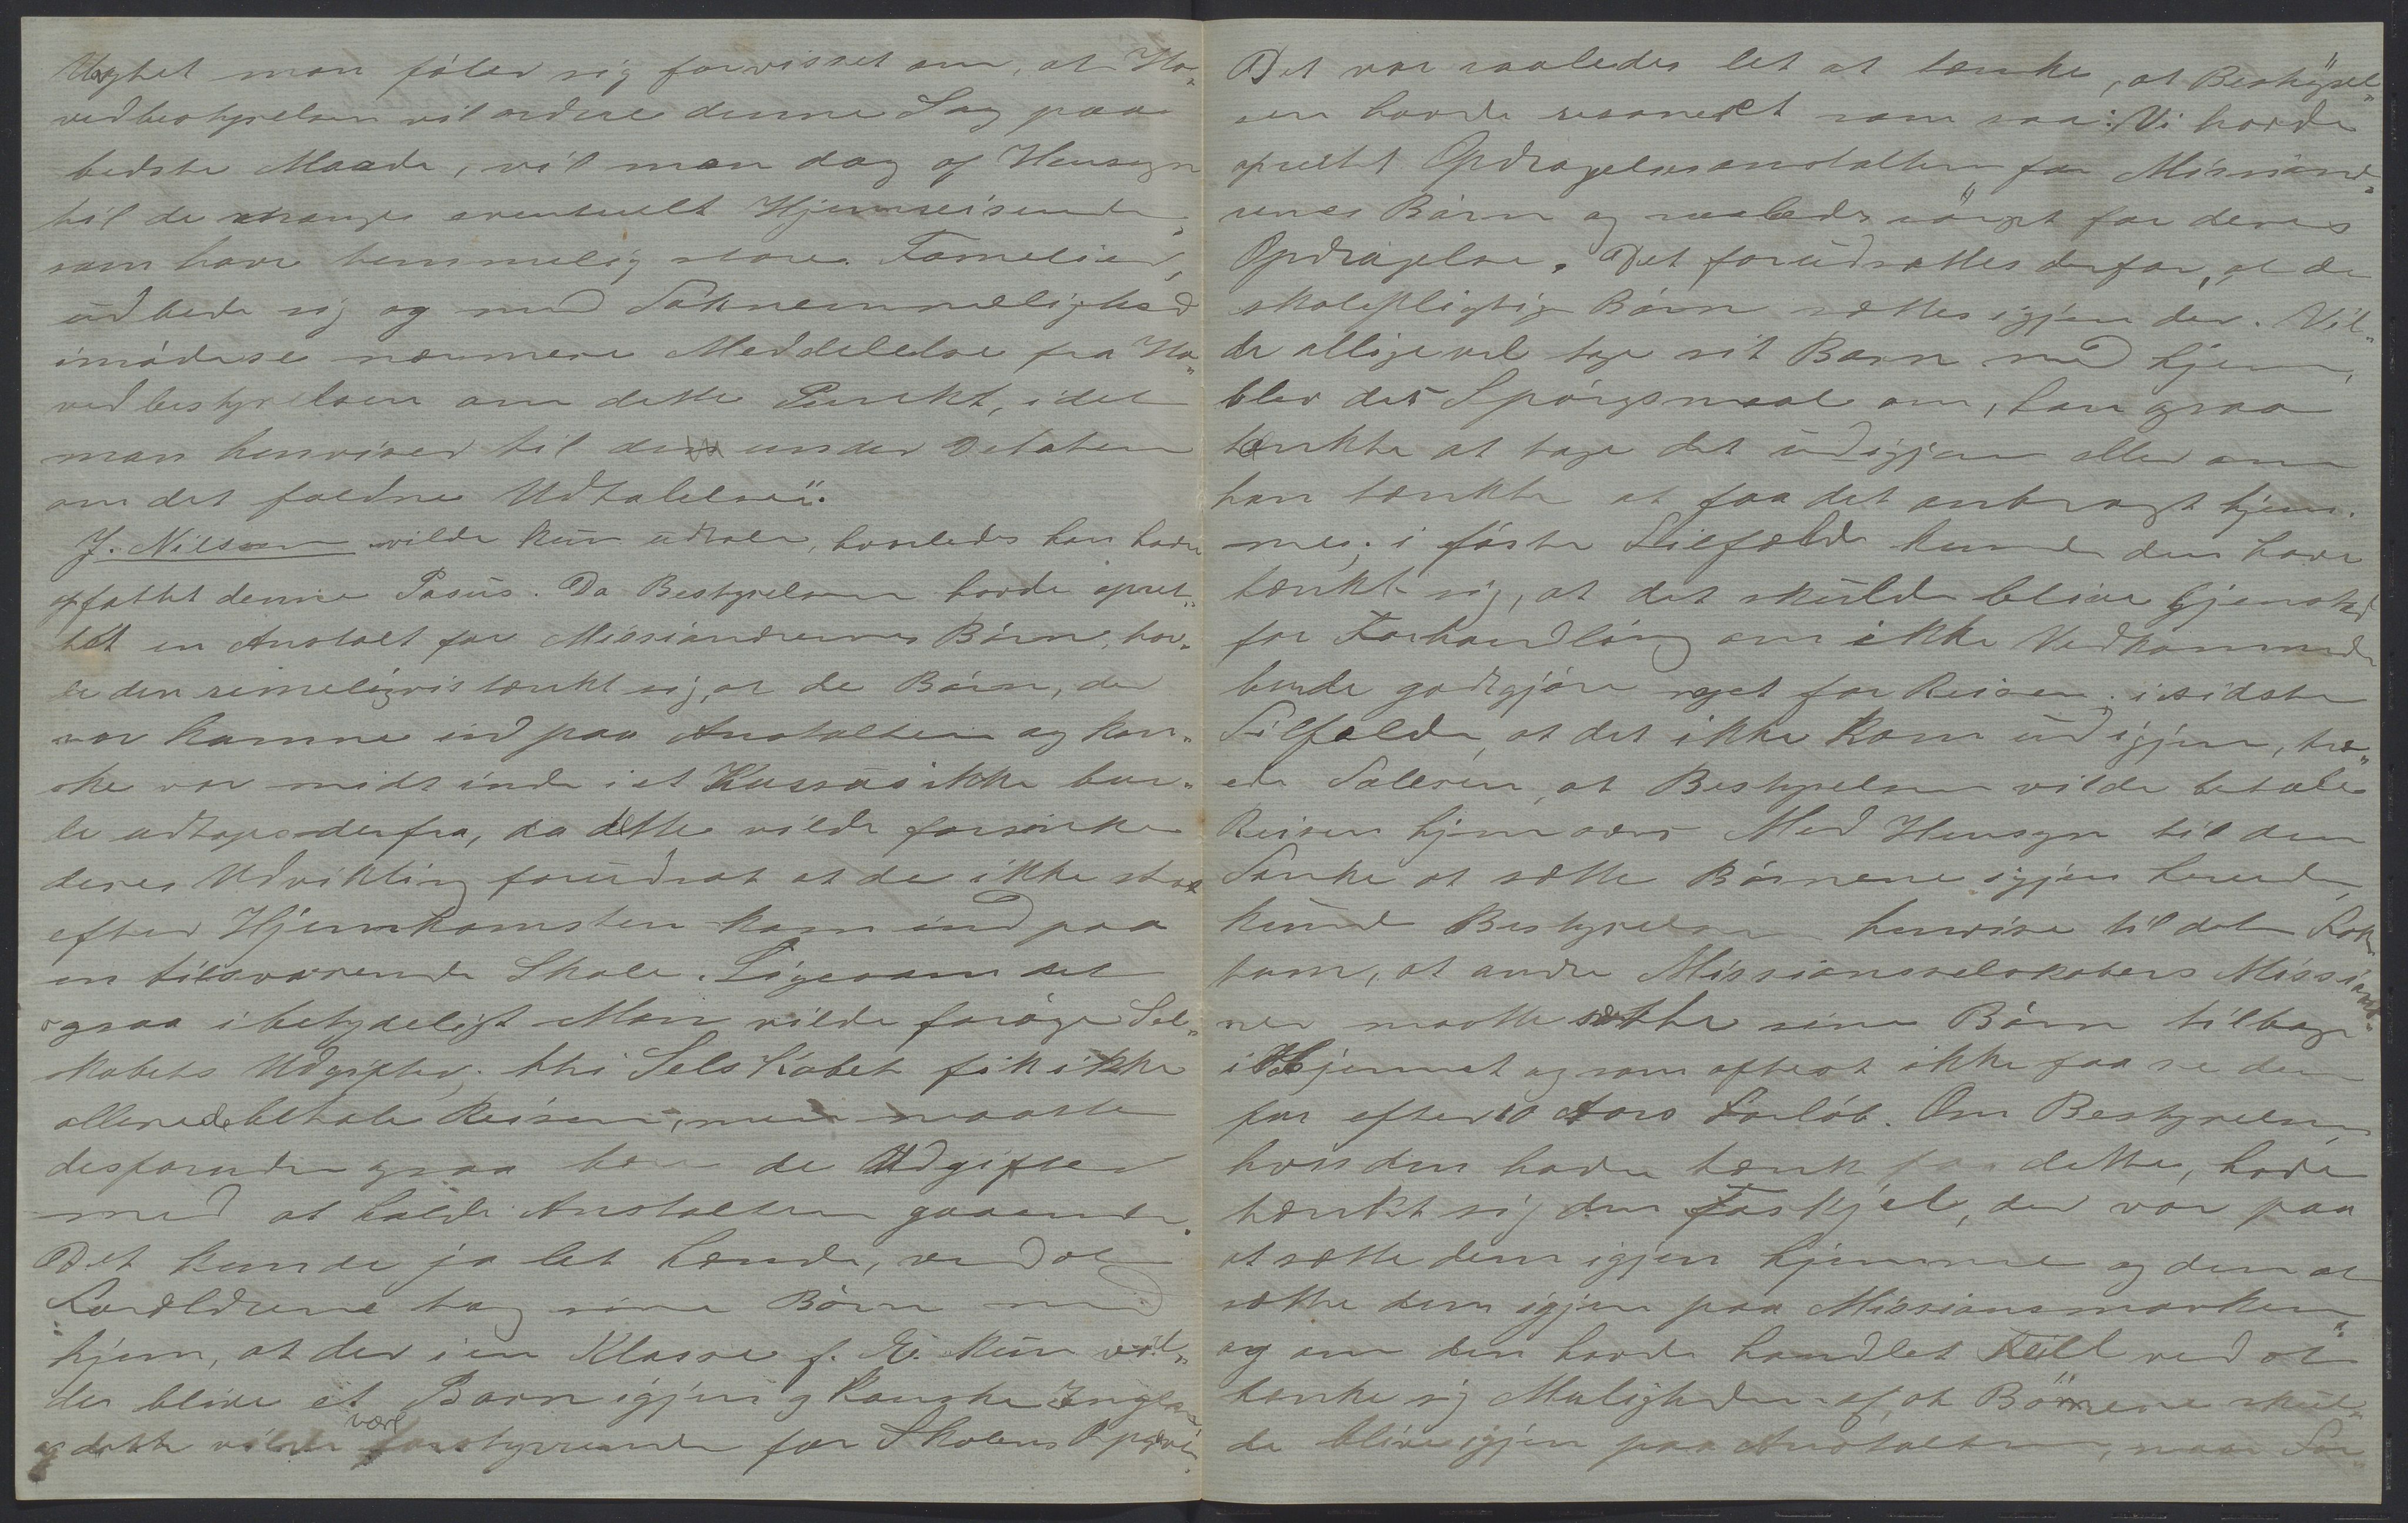 Uagtet man føler sig forvisset om, at Ho„
vedbestyrelsen vil ordne denne Sag paa
bedste Maade, vil man dog af Hensyn
til de mange eventuelt Hjemreisende,
som have temmelig store Familier,
udbede sig og med Taknemmelighed
imødese nærmere Meddelelse fra Ho„
vedbestyrelsen om dette Punkt, idet
man henviser til den under Debaten
om det faldne Udtalelser".
J. Nilsen vilde kun udtale, hvorledes han havde
opfattet denne Pasus. Da Bestyrelsen havde opret„
tet en Anstalt for Missionærernes Børn, hav„
de den rimeligvis tænkt sig, at de Børn, der
var komne ind paa Anstalten og kan„
ske var midt inde i et Kursus ikke bur„
de udtages derfra, da dette vilde forsinke
deres Udvikling forudsat at de ikke strax
efter Hjemkomsten kom ind paa
en tilsvarende Skole. Ligesom det
ogsaa i betydeligt Mon vilde forøge Sel„
skabets Udgifter; thi Selskabet fik ikke
allerede betale Reisen, men maatte
desforuden ogsaa bære de Udgifter
med at holde Anstalten gaaende.
Det kunde jo let hænde, ved at
Forældrene tog sine Børn med
hjem, at der i en Klasse f. Ex. kun vil„
de blive et Barn igjen og kanske Ingen
og dette vilde være forstyrrende for Skolens
Det var saaledes let at tænke, at Bestyrel„
sen havde resoneret som saa: Vi havde
oprettet Opdragelsesanstalten for Missionæ„
rernes Børn og saaledes sørget for deres
Opdragelse. Det forudsattes derfor, at de
skolepligtige Børn sættes igjen der. Vil„
de alligevel tage sit Barn med hjem,
blev det Spørgsmaal om, han ogsaa
tænkte at tage det ud igjen eller om
han tænkte at faa det anbragt hjem„
me; i første Tilfælde kunde den have
tænkt sig, at det skulde blive Gjenstand
for Forhandling om ikke Vedkommende
burde godtgjøre noget for Reisen; i sidste
Tilfælde, at det ikke kom ud igjen, hav„
ede at Bestyrelsen vilde betale
Reisen hjem Med Hensyn til den
Tanke at sætte Børnene igjen herude,
kunde Bestyrelsen henvise til det Fak„
tum, at andre Missionsselskabers Missionæ„
rer maatte sætte sine Børn tilbage
i Hjemmet og som oftest ikke faa se dem
før efter 10 Aars Forløb. Om Bestyrelsen,
hvis den havde tænkt paa dette, havde
tænkt sig den Forskjel, der var paa
at sætte dem igjen hjemme og dem at
sætte dem igjen paa Missionsmarken",
og om den havde handlet ved at
tænke sig Muligheden af, at Børnene skul„
de blive igjen paa Anstalten, naar For„